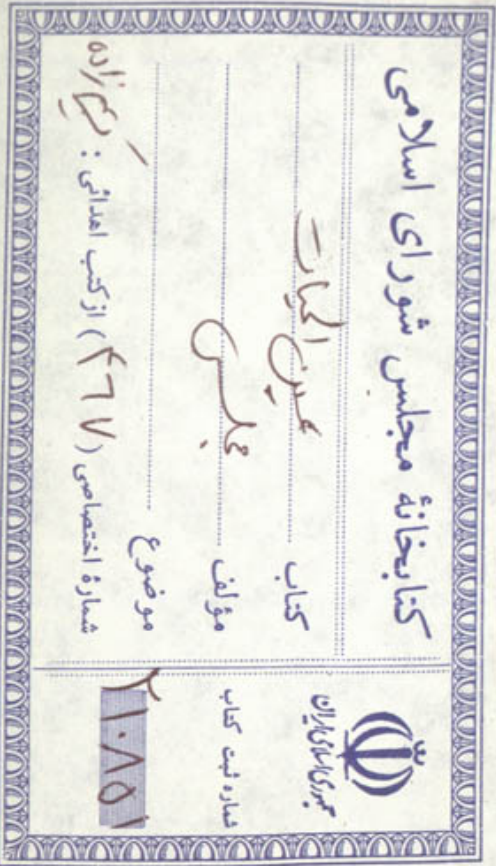 کتابخانهٔ مجلس شورای اسلامی
کتاب عین الحیات
مؤلف مجلسی
موضوع
شمارهٔ اختصاصی ( ۴٦۷ ) از کتب اهدائی : کریم زاده
جمهوری اسلامی ایران
شماره ثبت کتاب
۲۱۰۸۵۱